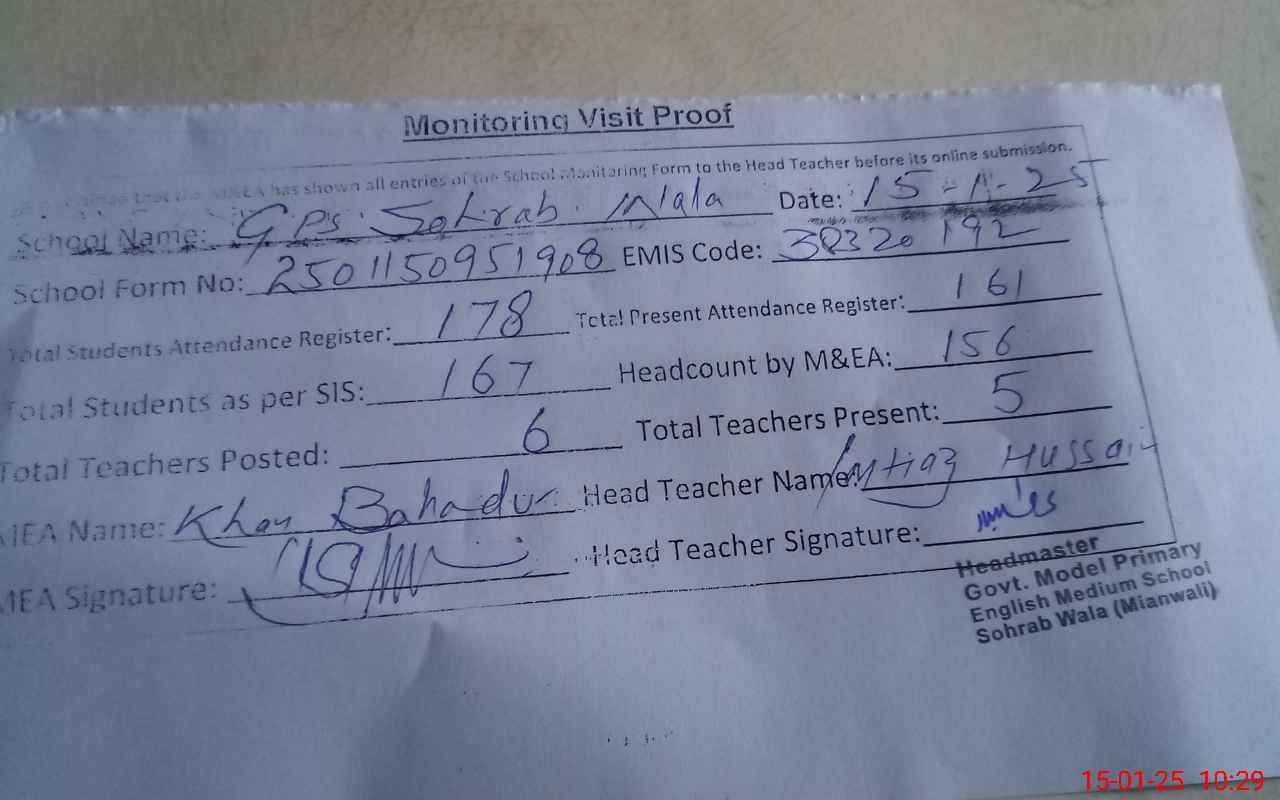 Monitoring Visit Proof
that the M&EA has shown all entries of the School Monitoring Form to the Head Teacher before its online submission.
School Name: GPS Sohrab Wala Date: 15-1-25
School Form No: 2501150951908 EMIS Code: 38320192
Total Students Attendance Register: 178 Total Present Attendance Register: 161
Total Students as per SIS: 167 Headcount by M&EA: 156
Total Teachers Posted: 6 Total Teachers Present: 5
MEA Name: Khan Bahadur Head Teacher Name: Imtiaz Hussain
MEA Signature: Head Teacher Signature:
Headmaster
Govt. Model Primary
English Medium School
Sohrab Wala (Mianwali)
15-01-25 10:29